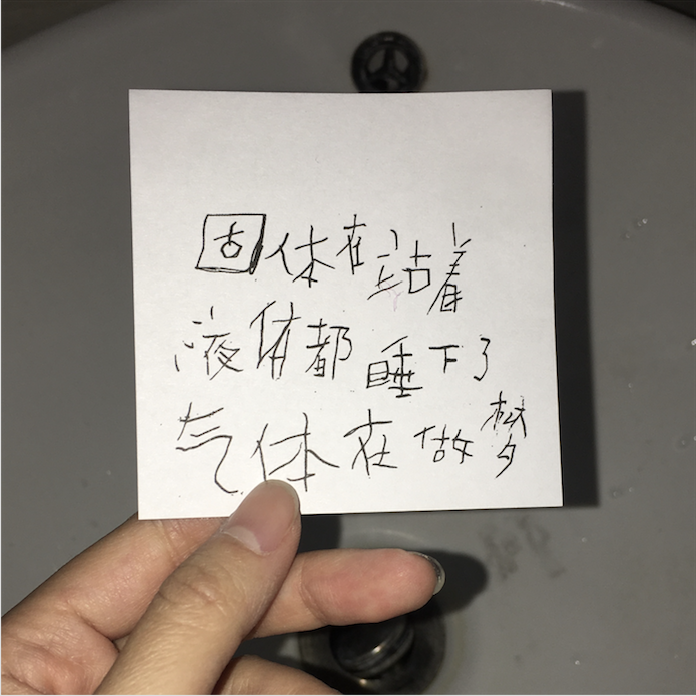 固体在站着
液体都睡下了
气体在做梦